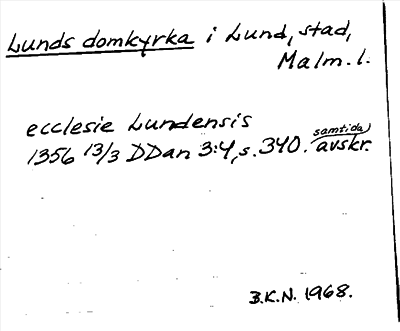 Lunds domkyrka i Lund, stad,
Malm. l.
ecclesie Lundensis
1356 13/3 DDan 3:4, s. 340. samtida avskr.
B.K.N. 1968.